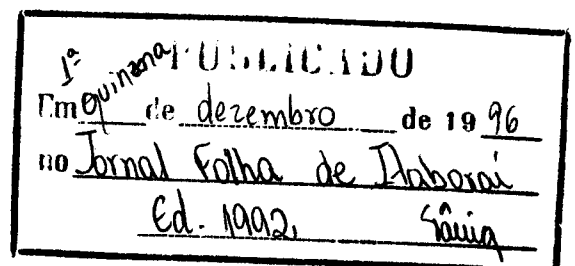 PUBLICADO
Em 1ª quinzena de dezembro de 1996
no Jornal Folha de Itaboraí
Ed. 1992.